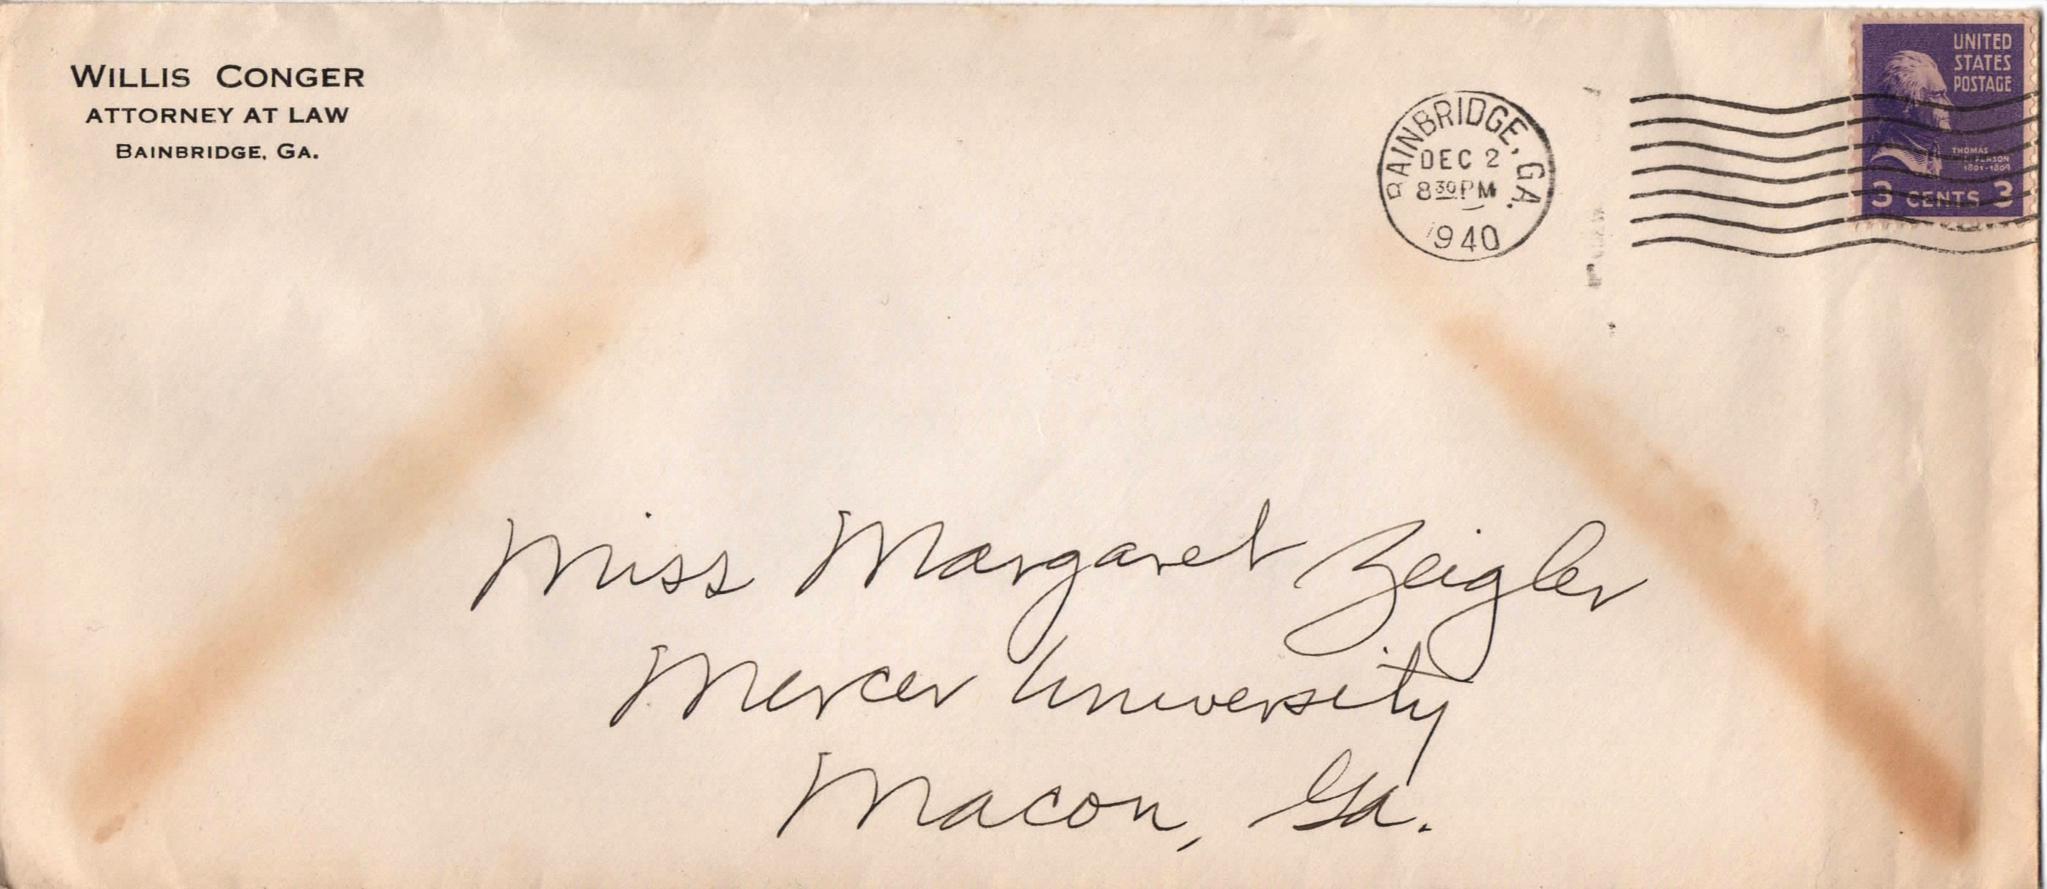 WILLIS CONGER
ATTORNEY AT LAW
BAINBRIDGE, GA.
BAINBRIDGE, GA.
DEC 2
8 30 PM
1940
UNITED
STATES
POSTAGE
THOMAS
JEFFERSON
1801-1809
3 CENTS 3
Miss Margaret Zeigler
Mercer University
Macon, Ga.